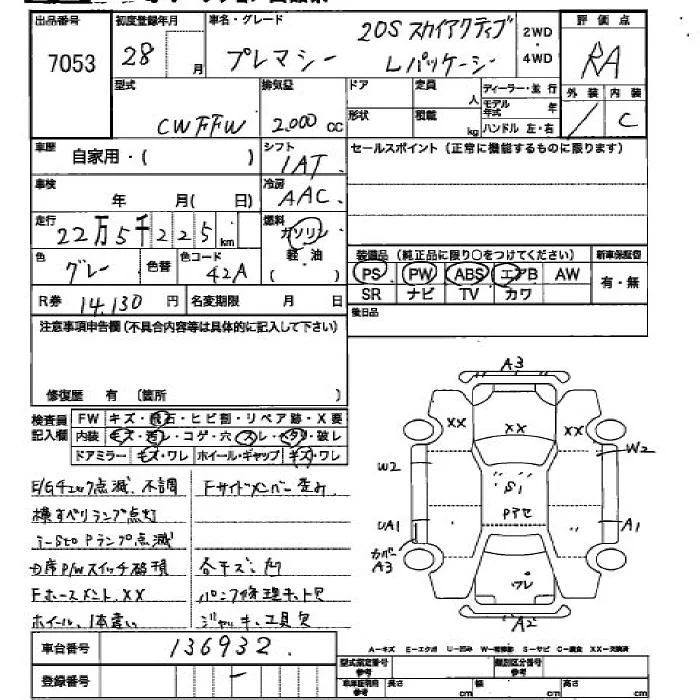 出品番号 初度登録年月 車名・グレード 2WD・4WD 評価点
7053 28 月 プレマシー 20S スカイアクティブ Lパッケージ RA
型式 排気量 ドア 定員 人 ディーラー・並行 外装 内装
CWFFW 2,000 cc 形状 積載 kg モデル年式 年 ハンドル 左・右 / C
車歴 自家用・( ) シフト 1AT セールスポイント(正常に機能するものに限ります)
車検 年 月( 日) 冷房 AAC
走行 22万5千225km 燃料 ガソリン 軽油 ( )
色 グレー 色替 色コード 42A
装備品(純正品に限り○をつけてください) 新車保証書
PS PW ABS エアB AW 有・無
SR ナビ TV カワ
R券 14,130 円 名変期限 月 日
後日品
注意事項申告欄(不具合内容等は具体的に記入して下さい)
修復歴 有 (箇所 )
検査員記入欄 FW キズ・飛石・ヒビ割・リペア跡・X要
内装 キズ・汚レ・コゲ・穴・スレ・ヘタリ・破レ
ドアミラー キズ・ワレ ホイール・ギャップ キズ・ワレ
E/Gチェック点滅、不調 Fサイドメンバー歪み
横すべりランプ点灯
i-stopランプ点滅
D席P/Wスイッチ破損 各キズ、凹
Fホースメント、XX パンク修理キット欠
ホイール、1本違い ジャッキ、工具欠
A3
XX XX XX
W2 W2
S1
Pアセ
UA1 A1
カバー A3
ワレ
A2
車台番号 136932
登録番号 -
A-キズ E-エクボ U-凹ミ W-補修跡 S-サビ C-腐食 XX-交換済
型式指定番号 参考 類別区分番号 参考
車庫証明用 参考 長さ cm 幅 cm 高さ cm